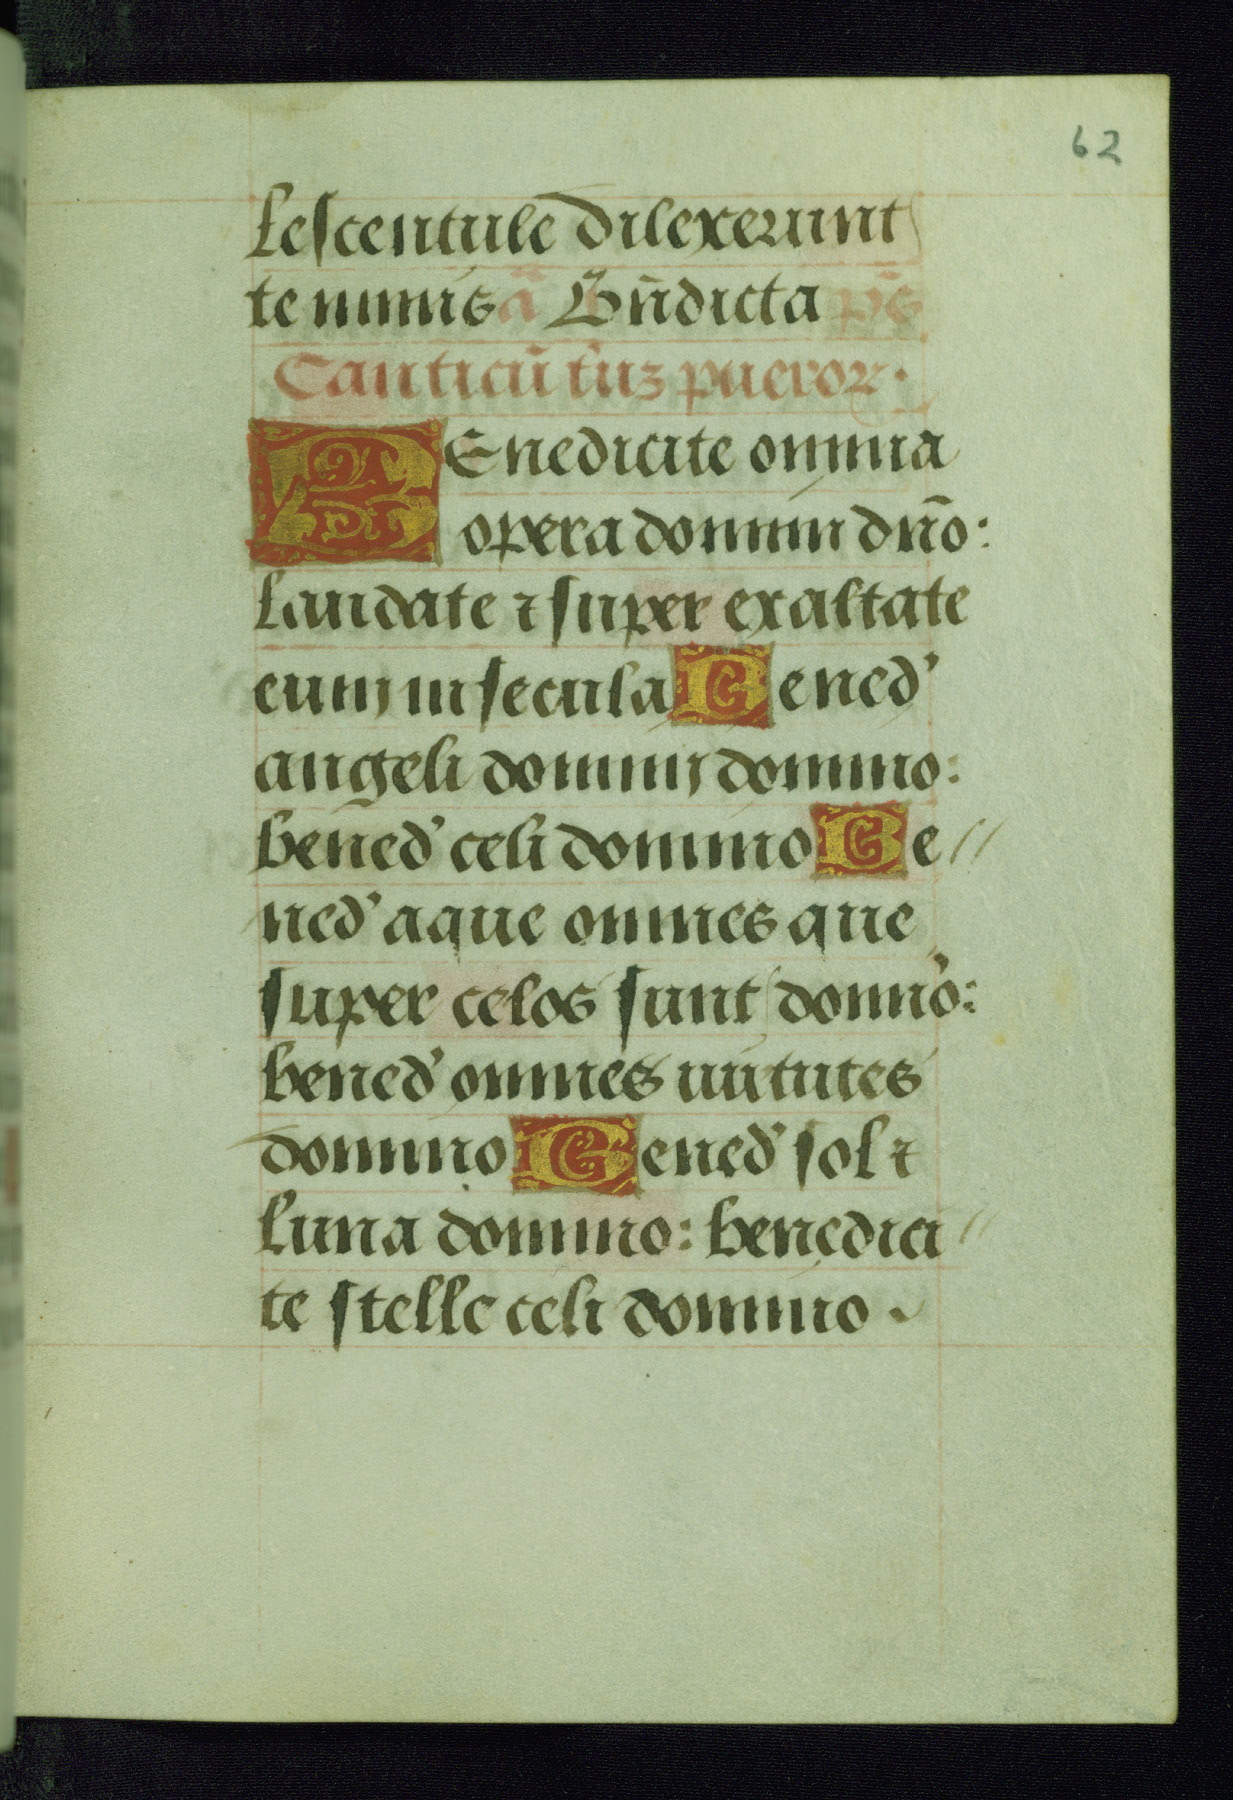 62
lescentule dilexerunt
te nimis ā Bn̄dicta ps̄
Canticū triuʒ pueroꝝ.
BEnedicite omnia
opera domini dn̄o:
laudate ⁊ super exaltate
eum in secula Bened'
angeli domini domino:
bened' celi domino Be//
ned' aque omnes que
super celos sunt domno:
bened' omnes uirtutes
domino Bened' sol ⁊
luna domino: benedici//
te stelle celi domino.